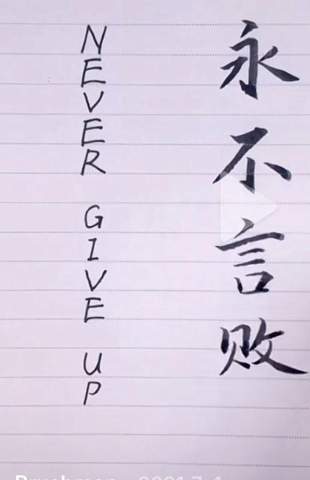 NEVER GIVE UP
永不言败